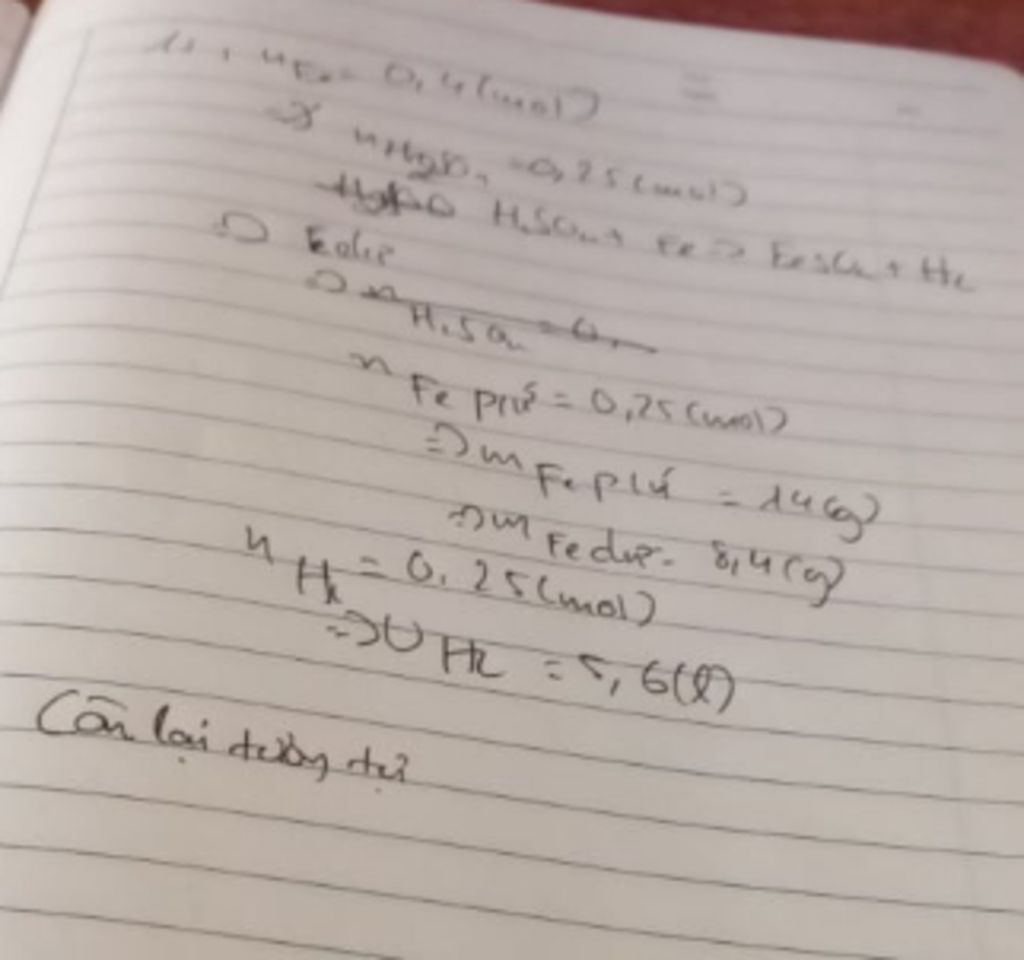 n Fe = 0,4(mol)
=> n H2SO4 = 0,25(mol)
H2SO4 + Fe => FeSO4 + H2
=> Fe dư
=> n H2SO4 = 0,
n Fe p/ứ = 0,25(mol)
=> m Fe p/ứ = 14(g)
=> m Fe dư = 8,4(g)
n H2 = 0,25(mol)
=> V H2 = 5,6(l)
Còn lại tương tự